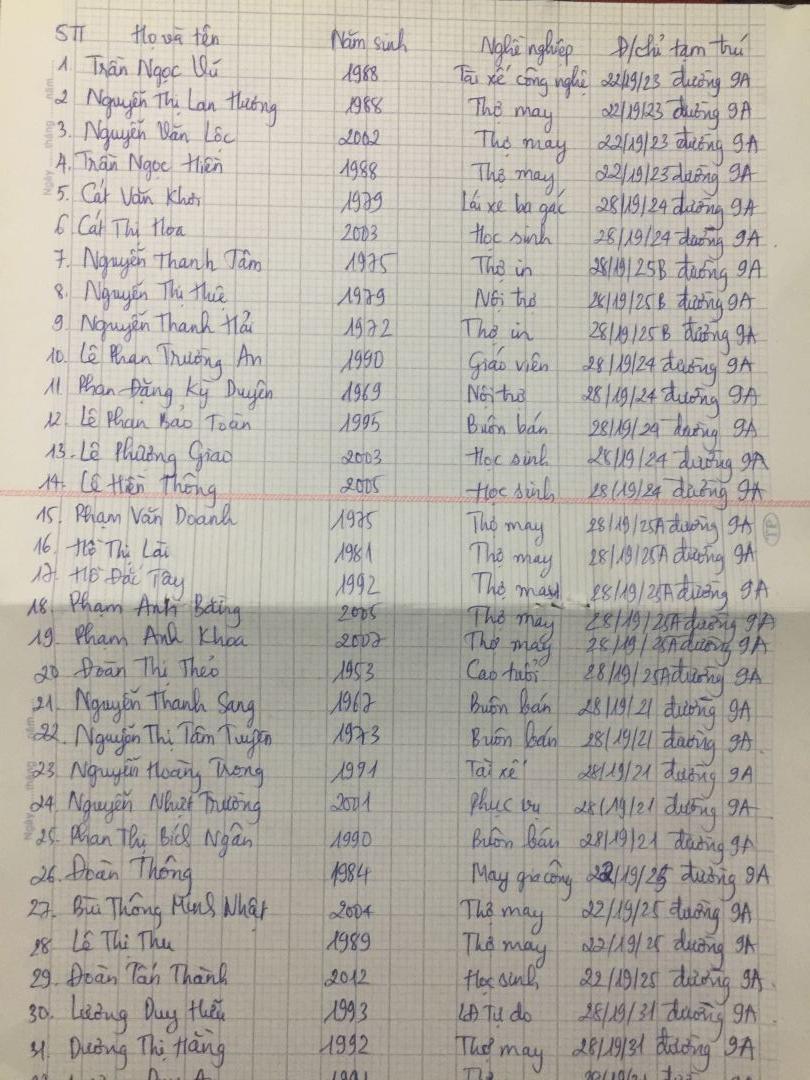 STT Họ và tên Năm sinh Nghề nghiệp Đ/chỉ tạm trú
1. Trần Ngọc Vũ 1988 Tài xế công nghệ 22/19/23 đường 9A
2 Nguyễn Thị Lan Hương 1988 Thợ may 22/19/23 đường 9A
3. Nguyễn Văn Lộc 2002 Thợ may 22/19/23 đường 9A
4. Trần Ngọc Hiền 1988 Thợ may 22/19/23 đường 9A
5. Cát Văn Khởi 1979 Lái xe ba gác 28/19/24 đường 9A
6 Cát Thị Hoa 2003 Học sinh 28/19/24 đường 9A
7. Nguyễn Thanh Tâm 1975 Thợ in 28/19/25B đường 9A
8. Nguyễn Thị Huệ 1979 Nội trợ 28/19/25B đường 9A
9 Nguyễn Thanh Hải 1972 Thợ in 28/19/25B đường 9A
10. Lê Phan Trường An 1990 Giáo viên 28/19/24 đường 9A
11 Phan Đặng Kỳ Duyên 1969 Nội trợ 28/19/24 đường 9A
12. Lê Phan Bảo Toàn 1995 Buôn bán 28/19/24 đường 9A
13. Lê Phương Giao 2003 Học sinh 28/19/24 đường 9A
14. Lê Hiền Thông 2005 Học sinh 28/19/24 đường 9A
15. Phạm Văn Doanh 1975 Thợ may 28/19/25A đường 9A
16. Hồ Thị Lài 1981 Thợ may 28/19/25A đường 9A
17. Hồ Đắc Tây 1992 Thợ may 28/19/25A đường 9A
18. Phạm Anh 2005 Thợ may 28/19/25A đường 9A
19. Phạm Anh Khoa 2007 Thợ may 28/19/25A đường 9A
20 Đoàn Thị Thẻo 1953 Cao tuổi 28/19/25A đường 9A
21. Nguyễn Thanh Sang 1967 Buôn bán 28/19/21 đường 9A
22. Nguyễn Thị Tâm Truyền 1973 Buôn bán 28/19/21 đường 9A
23. Nguyễn Hoàng Trọng 1991 Tài xế 28/19/21 đường 9A
24. Nguyễn Nhựt Trường 2001 Phục vụ 28/19/21 đường 9A
25. Phan Thị Bích Ngân 1990 Buôn bán 28/19/21 đường 9A
26. Đoàn Thông 1984 May gia công 22/19/25 đường 9A
27. Bùi Thông Minh Nhật 2004 Thợ may 22/19/25 đường 9A
28 Lê Thị Thu 1989 Thợ may 22/19/25 đường 9A
29. Đoàn Tấn Thành 2012 Học sinh 22/19/25 đường 9A
30. Lương Duy Hiếu 1993 LĐ Tự do 28/19/31 đường 9A
31. Dương Thị Hằng 1992 Thợ may 28/19/31 đường 9A